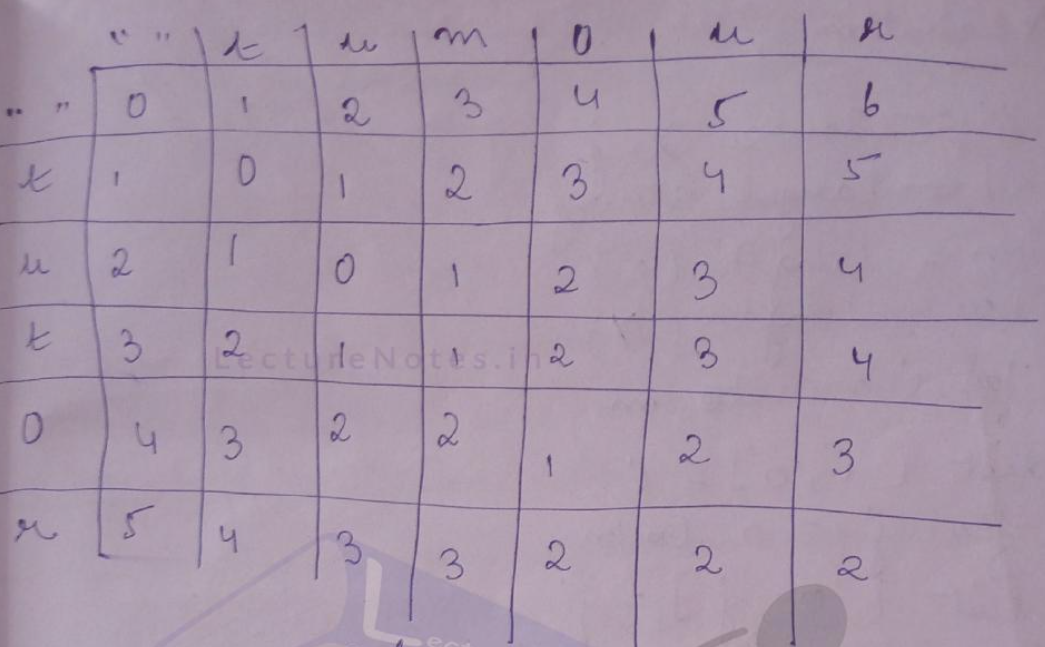 " " t u m o u r
" " 0 1 2 3 4 5 6
t 1 0 1 2 3 4 5
u 2 1 0 1 2 3 4
t 3 2 1 1 2 3 4
o 4 3 2 2 1 2 3
r 5 4 3 3 2 2 2
LectureNotes.in